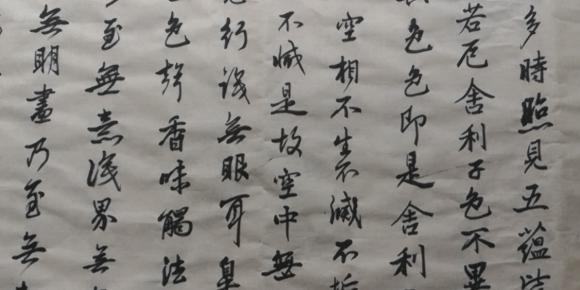 多時照見五蘊皆
苦厄舍利子色不異
色色即是舍利
空相不生不滅不垢
不減是故空中無
行識無眼耳鼻
色聲香味觸法
至無意識界無
無明盡乃至無